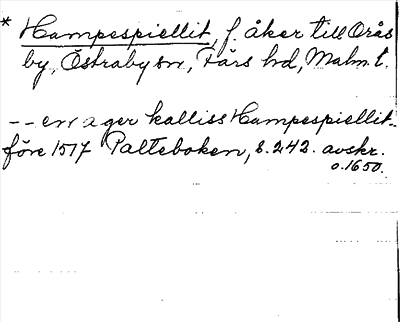 * Hampespiellit, f. åker till Orås
by, Östraby sn, Färs hd, Malm. l.
-- en ager kalliss Hampespiellit-
före 1517 Palteboken, s. 242. avskr.
o. 1650.